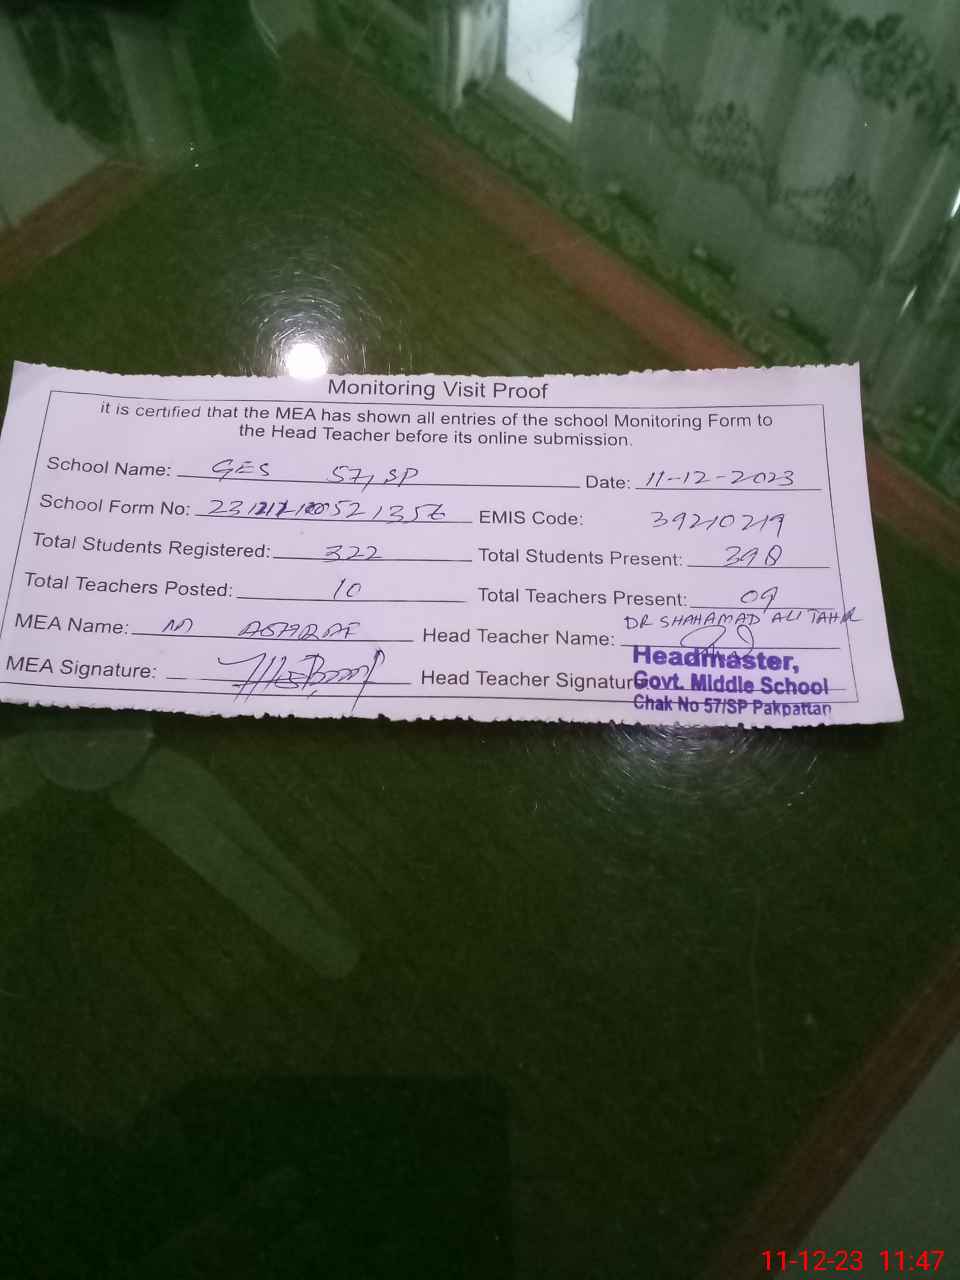 Monitoring Visit Proof
it is certified that the MEA has shown all entries of the school Monitoring Form to
the Head Teacher before its online submission.
School Name: GES 57/SP Date: 11-12-2023
School Form No: EMIS Code: 39210219
Total Students Registered: 322 Total Students Present:
Total Teachers Posted: 10 Total Teachers Present: 09
MEA Name: M ASHRAF Head Teacher Name: DR SHAHAMAD ALI TAHIR
MEA Signature: Head Teacher Signature
Headmaster,
Govt. Middle School
Chak No 57/SP Pakpattan
11-12-23 11:47